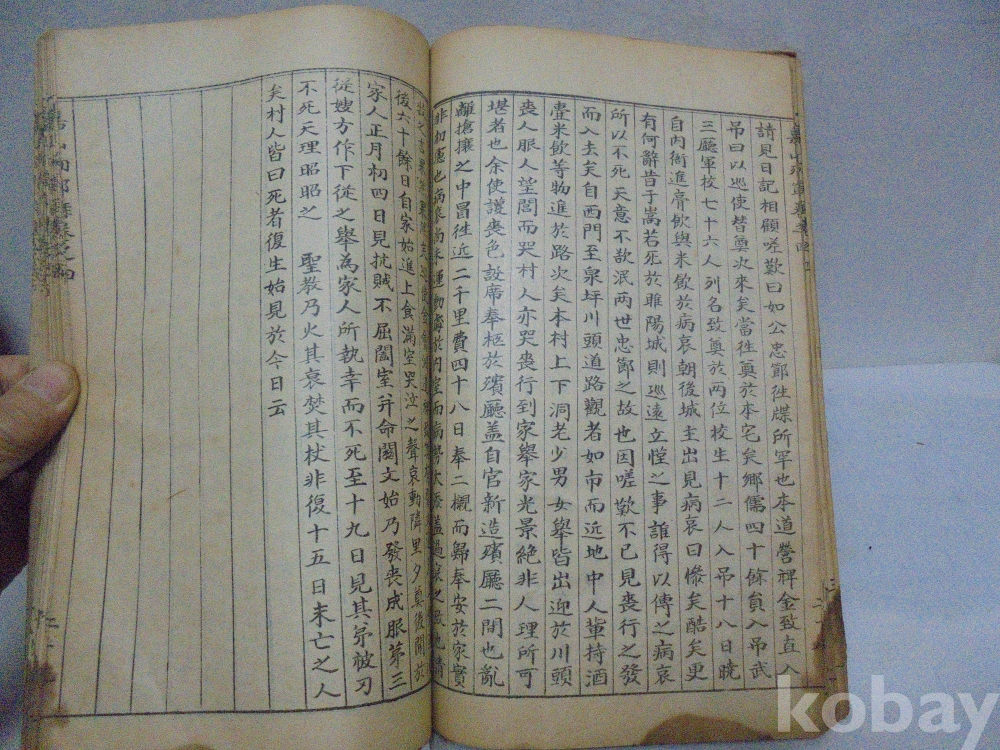 請見日記相顧嗟歎曰如公忠節徃牒所罕也本道營裨金致直入
吊曰以巡使替奠次來矣當徃奠於本宅矣鄕儒四十餘員入吊武
三廳軍校七十六人列名致奠於兩位校生十二人入吊十八日曉
自內衙進膏飮與米飮於病哀朝後城主出見病哀曰慘矣酷矣更
有何辭昔于嵩若死於睢陽城則巡遠立慬之事誰得以傳之病哀
所以不死天意不欲泯兩世忠節之故也因嗟歎不已見喪行之發
而入去矣自西門至泉坪川頭道路觀者如市而近地中人軰持酒
壹米飮等物進於路次矣本村上下洞老少男女舉皆出迎於川頭
喪人服人望閭而哭村人亦哭喪行到家舉家光景絶非人理所可
堪者也余使護喪色設席奉柩於殯廳盖自官新造殯廳二間也亂
離搶攘之中冒徃近二千里費四十八日奉二櫬而歸奉安於家實
非初慮也病哀尙未運動 於內室而病勢大
後六十餘日自家始進上食滿室哭泣之聲哀動隣里夕奠後開於
家人正月初四日見抗賊不屈闔室幷命闕文始乃發喪成服第三
從嫂方作下從之舉為家人所執幸而不死至十九日見其弟被刃
不死天理昭昭之 聖敎乃火其哀焚其杖非復十五日未亡之人
矣村人皆曰死者復生始見於今日云
kobay